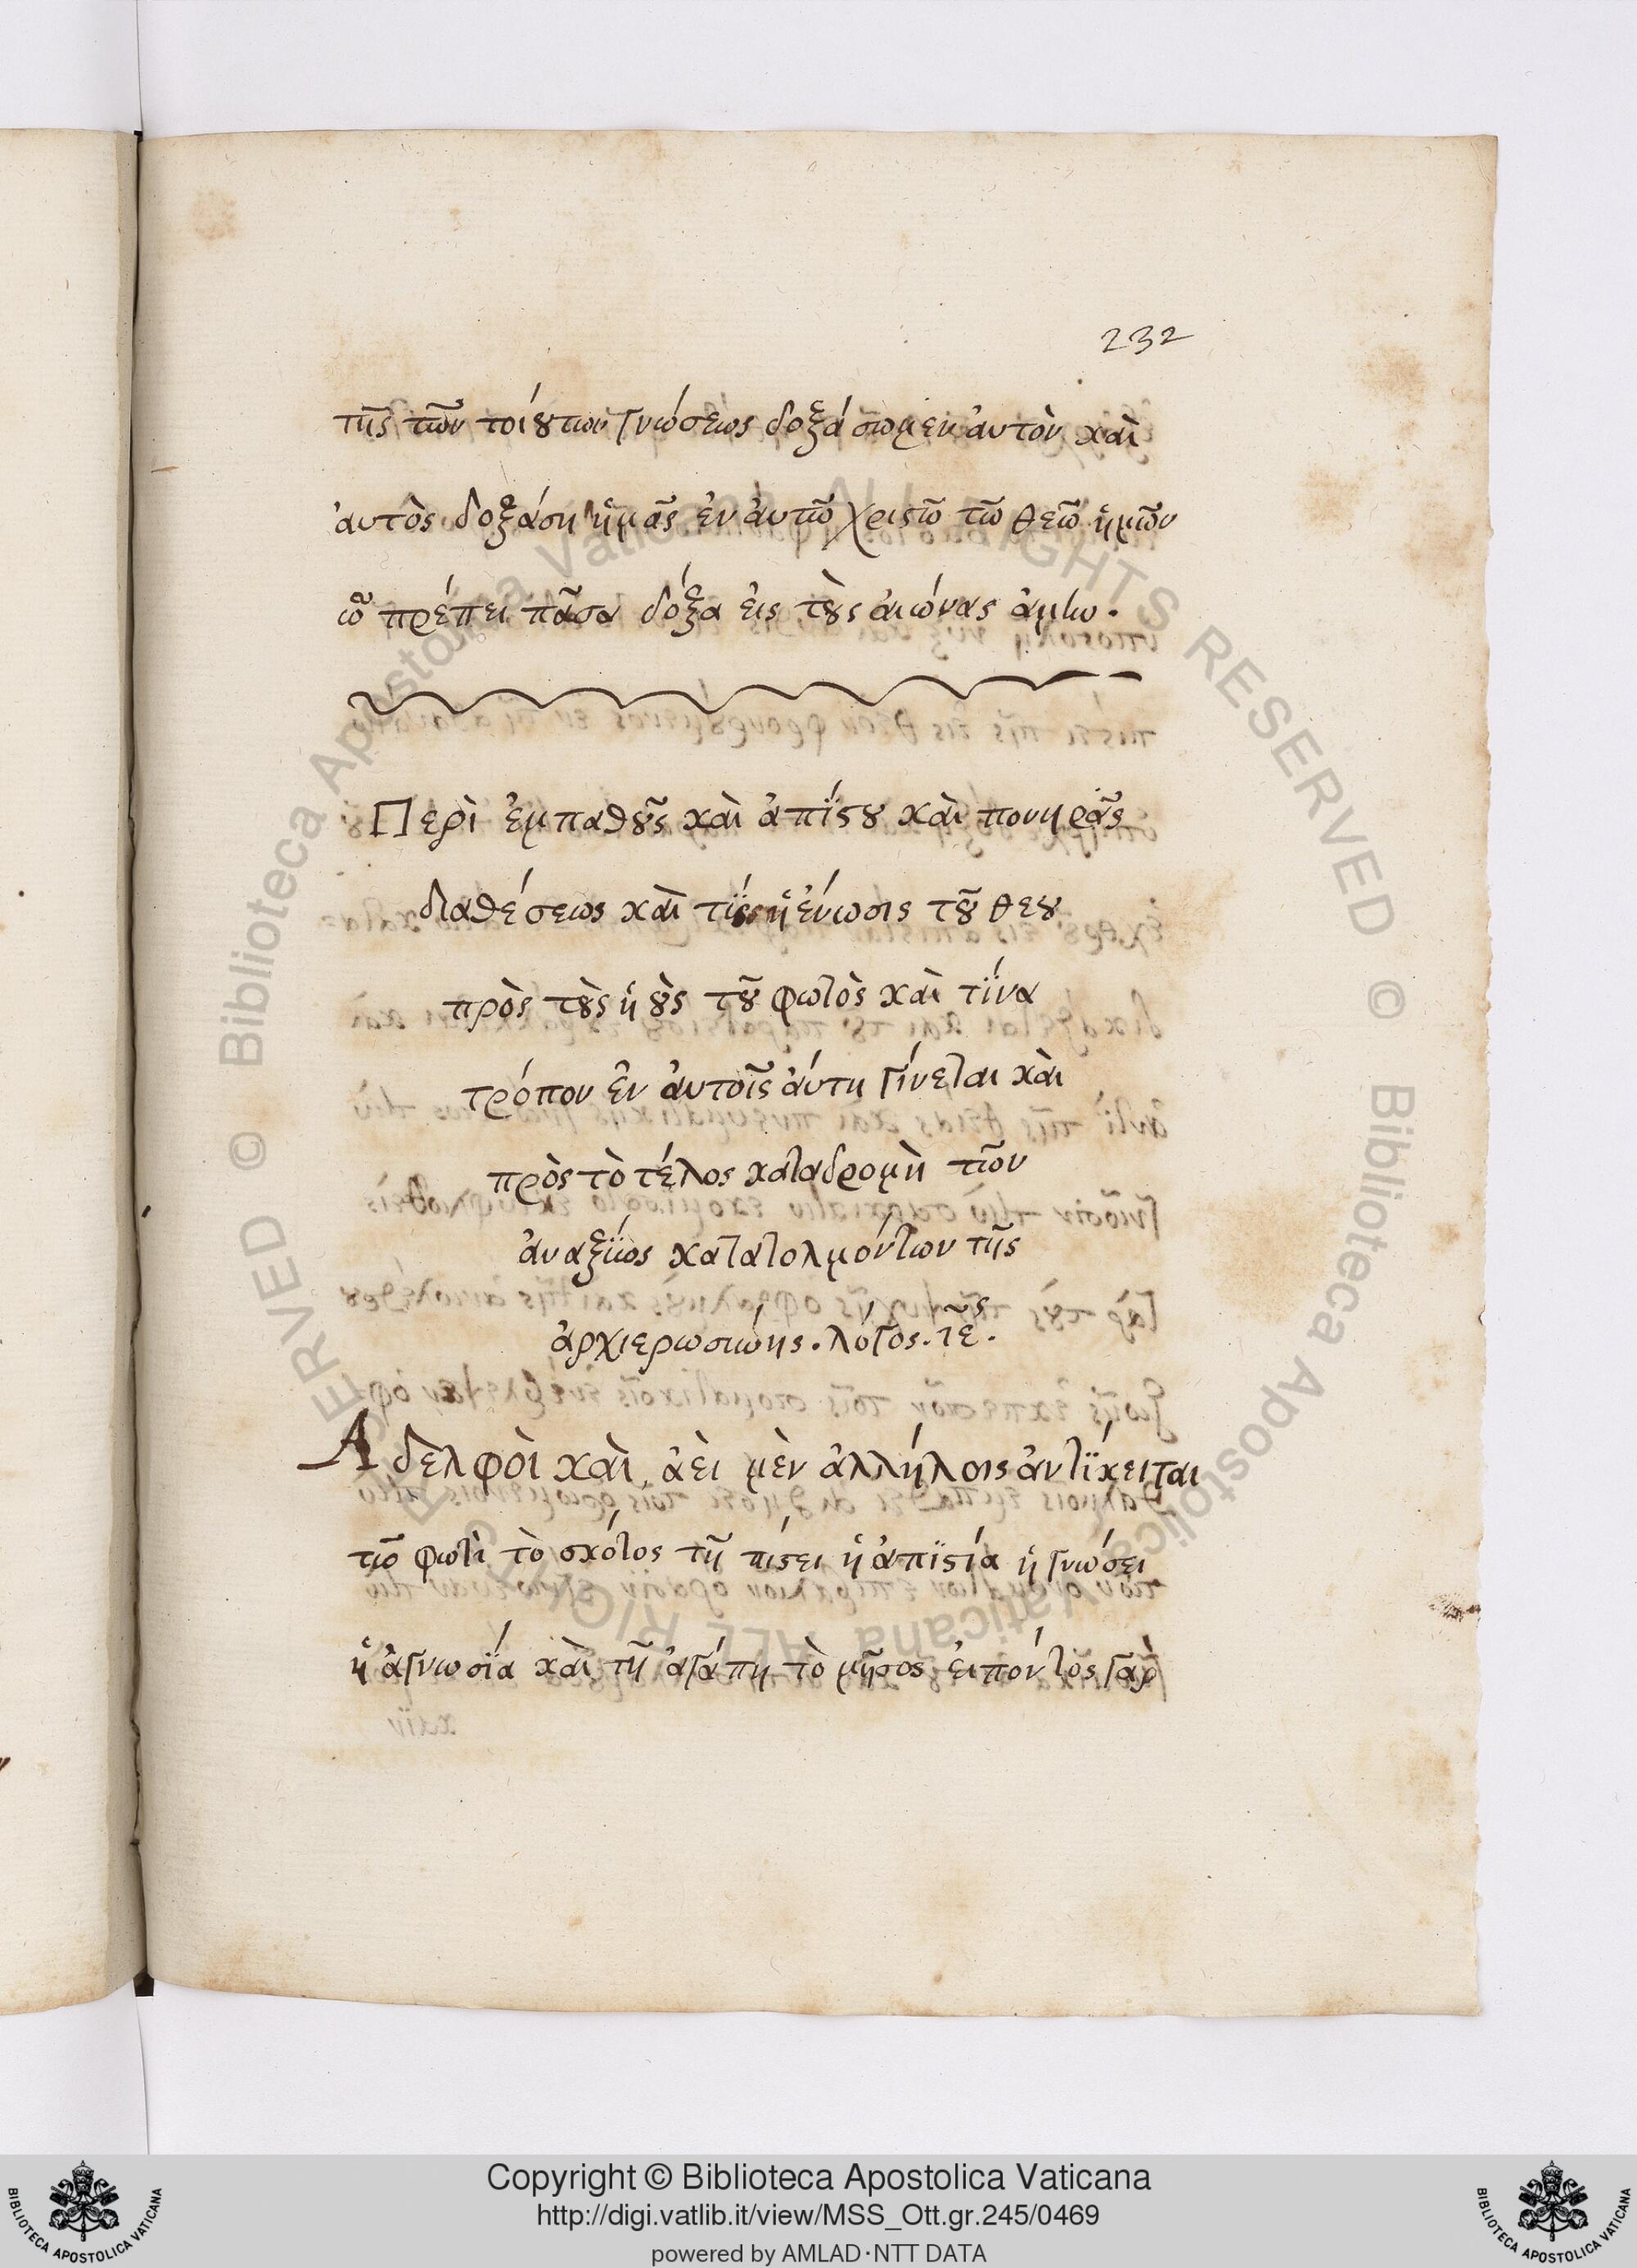 232
τῆς τῶν τοιούτων γνώσεως δοξάσωμεν ἀυτὸν καὶ
ἀυτὸς δοξάση ἡμᾶς ἐν ἀυτῶ χριστῶ τῶ θεῶ ἡμῶν
ὧ πρέπει πᾶσα δόξα ἐις τοὺς ἀιώνας ἀμήν.
Περὶ ἐμπαθοῦς καὶ ἀπίστου καὶ πονηρᾶς
διαθέσεως καὶ τίς ἡ ἕνωσις τοῦ θεου
πρὸς τοὺς ὑιοὺς τοῦ φωτὸς καὶ τίνα
τρόπον ἐν ἀυτοῖς ἀύτη γίνεται καὶ
πρὸς τὸ τέλος καταδρομὴ τῶν
ἀναξίως κατατολμόντων τῆς
ἀρχιερωσύνης. λόγος. ιε^ος.
Ἀδελφὸι καὶ ἀὲι μὲν ἀλλήλοις ἀντίκειται
τῶ φωτὶ τὸ σκότος τῆ πίστει ἡ ἀπιστία ἡ γνώσει
ἡ ἀγνωσία καὶ τῆ ἀγάπη τὸ μῆσος ἐιπόντος γὰρ
Copyright © Biblioteca Apostolica Vaticana
http://digi.vatlib.it/view/MSS_Ott.gr.245/0469
powered by AMLAD·NTT DATA
BIBLIOTECA APOSTOLICA VATICANA
BIBLIOTECA APOSTOLICA VATICANA
© Biblioteca Apostolica Vaticana ALL RIGHTS RESERVED
© Biblioteca Apostolica Vaticana ALL RIGHTS RESERVED